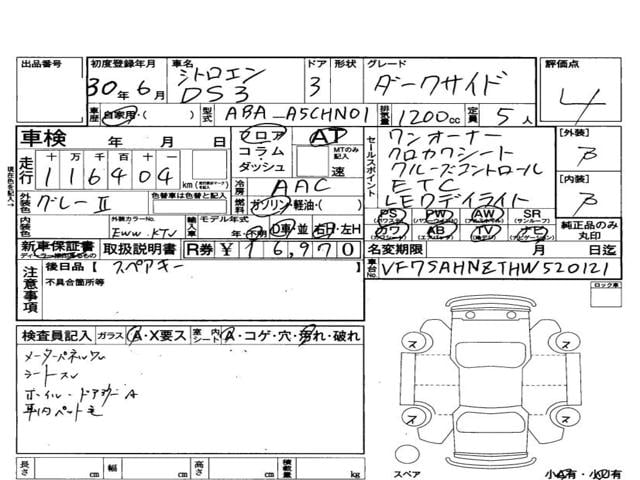 出品番号 初度登録年月 車名 ドア 形状 グレード 評価点
30年6月 シトロエン DS3 3 ダークサイド 4
車歴 自家用・( ) 型式 ABA-A5CHN01 排気量 1200cc 定員 5人
車検 年 月 日 フロア コラム ・ダッシュ AT MTのみ記入 速
セールスポイント ワンオーナー
クロカワシート
クルーズコントロール
ETC
LEDデイライト
[外装] B
[内装] B
走行 十 万 千 百 十 一
116404 km
冷房 AAC
外装色 グレーⅡ 車歴色は色替と記入
燃料 ガソリン・軽油・( )
内装色 外装カラーNo. EWW.KTV 輸入車 モデル年式 年・不明 D車・並 右H・左H
PS PW AW SR (サンルーフ)
カワ AB TV ナビ (ナビゲーション)
純正品のみ丸印
新車保証書 取扱説明書 R券 ¥16,970 名変期限 月 日迄
注意事項 後日品【 スペアキー
不具合箇所等
車台No. VF7SAHNZTHW520121
ロック車
検査員記入 ガラス A・X要ス 室内シート A・コゲ・穴・汚れ・破れ
メーターパネルワレ
シートスレ
ホイル・ドアミラーA
車内ペット毛
ス ス
ス ス
長さ cm 幅 cm 高さ cm 積載量 kg
スペア 小A有・小U有